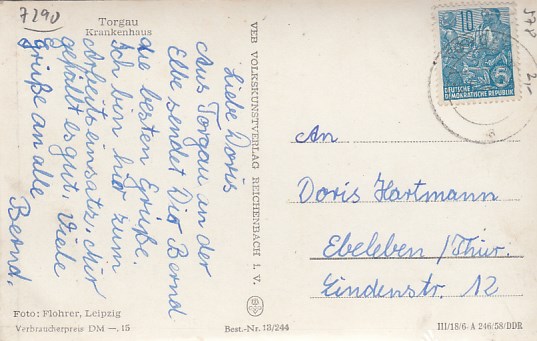 7290
Torgau
Krankenhaus
Liebe Doris
Aus Torgau an der
Elbe sendet Dir Bernd
die besten Grüße.
Ich bin hier zum
Arbeitseinsatz, Mir
gefällt es gut. Viele
Grüße an alle
Bernd.
Foto: Flohrer, Leipzig
Verbraucherpreis DM —.15
VEB VOLKSKUNSTVERLAG REICHENBACH I. V.
Best.-Nr. 13/244
10
5
DEUTSCHE
DEMOKRATISCHE REPUBLIK
578
2,-
An
Doris Hartmann
Ebeleben /Thür.
Lindenstr. 12
III/18/6- A 246/58/DDR